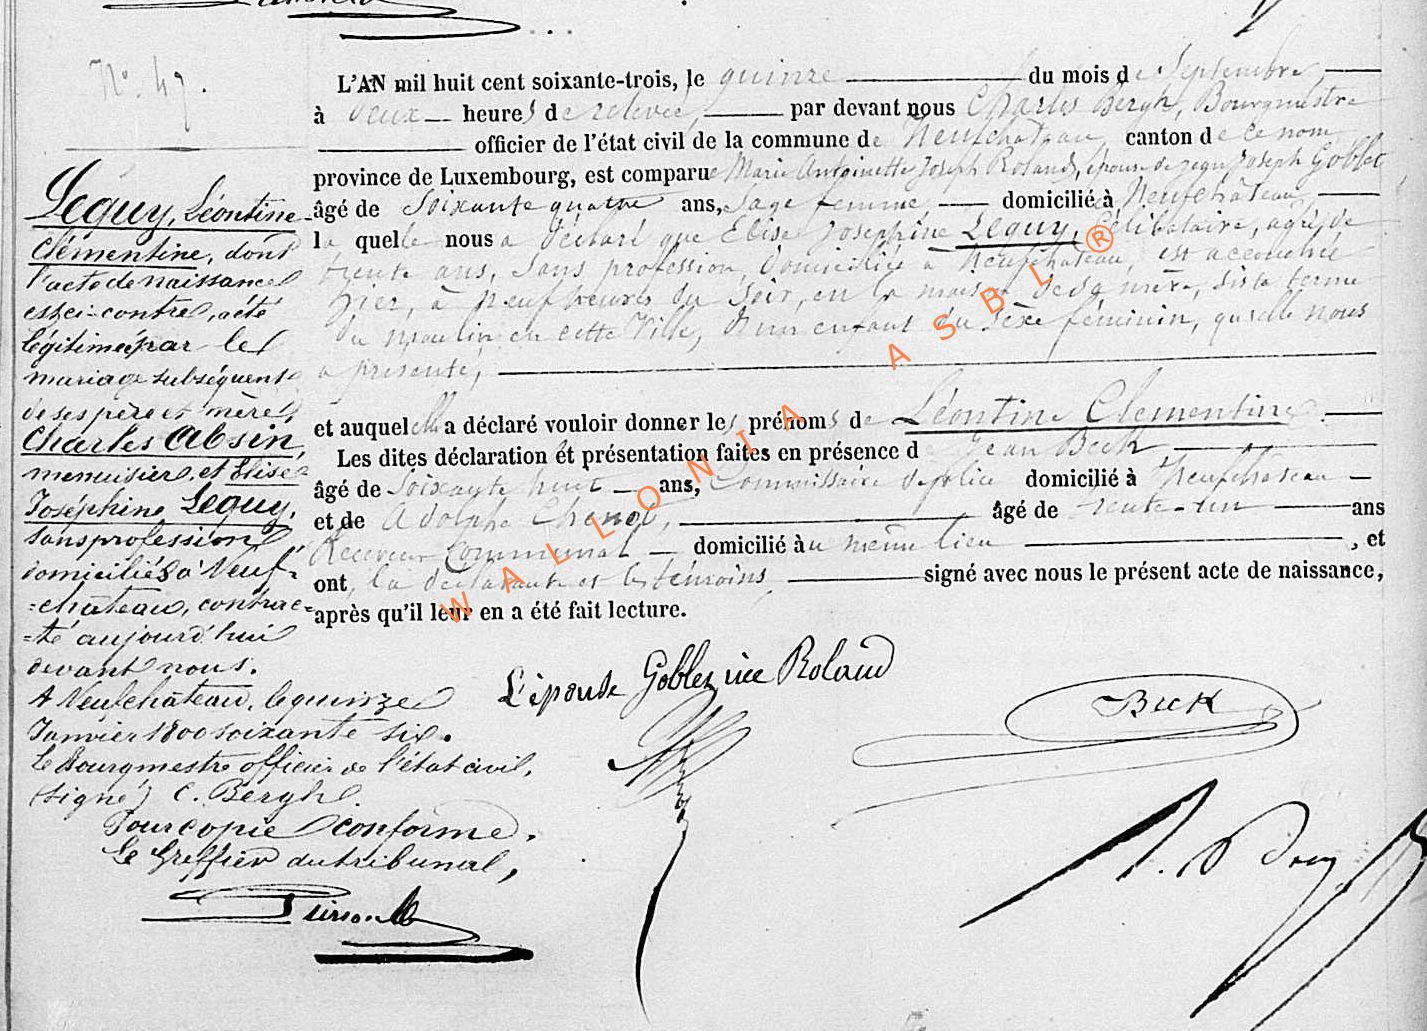 N° 49.
L'AN mil huit cent soixante-trois, le quinze du mois de Septembre,
à deux heures de relevée, par devant nous Charles Bergh, Bourgmestre
officier de l'état civil de la commune de Neufchateau, canton de ce nom
province de Luxembourg, est comparue Marie Antoinette Joseph Roland, épouse de Joseph Goblet
âgé de Soixante quatre ans, Sage femme, domicilié à Neufchâteau,
laquelle nous a déclaré que Elise Josephine Lequy, Célibataire, agée de
trente ans, sans profession, domiciliée à Neufchateau, est accouchée
hier, à neuf heures du soir, en la maison de sa mère, sise terme
du moulin en cette Ville, d'un enfant du sexe féminin, qu'elle nous
a présenté,
et auquel elle a déclaré vouloir donner les prénoms de Léontine Clementine
Les dites déclaration et présentation faites en présence de Jean Beck
âgé de Soixante huit ans, Commissaire de police domicilié à Neufchateau
et de Adolphe âgé de trente-un ans
Receveur Communal domicilié au même lieu , et
ont, la déclarante et les témoins signé avec nous le présent acte de naissance,
après qu'il leur en a été fait lecture.
Lequy, Léontine
Clémentine, dont
l'acte de naissance
est ci-contre, a été
légitimée par le
mariage subséquent
de ses père et mère
Charles Absin,
menuisier, et Elise
Joséphine Lequy,
sans profession,
domiciliés à Neuf-
=château, contrac=
=té aujourd'hui
devant nous.
A Neufchâteau, le quinze
Janvier 1800 soixante six.
Le Bourgmestre officier de l'état civil,
(signé) C. Bergh.
Pour copie conforme.
Le Greffier du tribunal,
L'épouse Goblet née Roland
Beck
WALLONIA ASBL ®